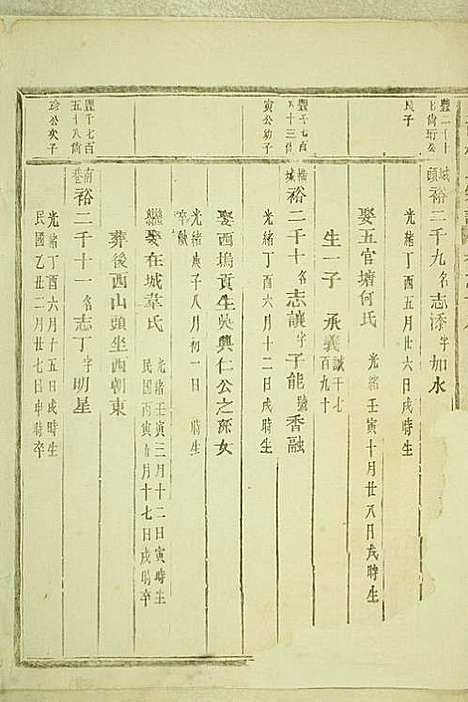 城頭 裕二千九 名志添 字如水
光緒丁酉五月廿六日戌時生
娶五官塘何氏 光緒壬寅十月廿八日戌時生
生一子 承義 誠千七百九十
豐千七百八十三
寅公幼子
城 裕二千十 名志讓 字子能 號香融
光緒丁酉六月十二日戌時生
娶西塢貢生吳興仁公之孫女
光緒庚子八月初一日 時生
卒缺
繼娶在城葉氏 光緒壬寅三月十二日寅時生
民國丙寅 月十七日戌時卒
葬後西山頭坐西朝東
豐千七百五十八
珍公次子
南巷 裕二千十一 名志丁 字明星
光緒丁酉六月十五日戌時生
民國乙丑二月廿七日申時卒